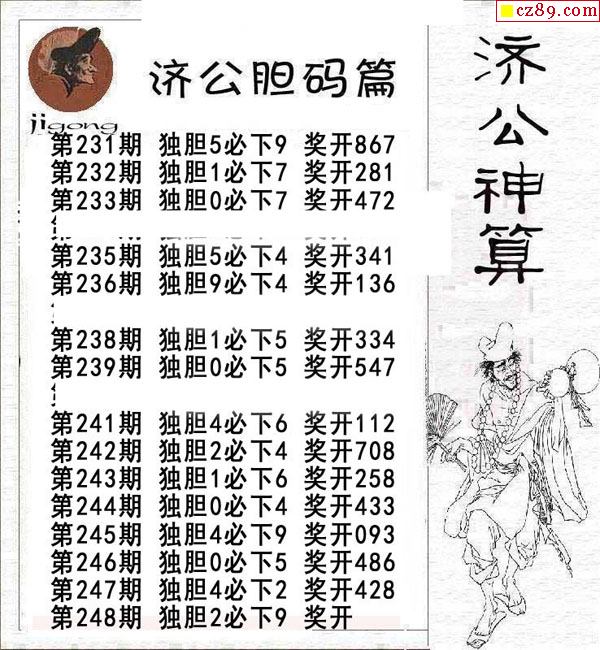 cz89.com
济公胆码篇
jigong
第231期 独胆5必下9 奖开867
第232期 独胆1必下7 奖开281
第233期 独胆0必下7 奖开472
第235期 独胆5必下4 奖开341
第236期 独胆9必下4 奖开136
第238期 独胆1必下5 奖开334
第239期 独胆0必下5 奖开547
第241期 独胆4必下6 奖开112
第242期 独胆2必下4 奖开708
第243期 独胆1必下6 奖开258
第244期 独胆0必下4 奖开433
第245期 独胆4必下9 奖开093
第246期 独胆0必下5 奖开486
第247期 独胆4必下2 奖开428
第248期 独胆2必下9 奖开
济公神算